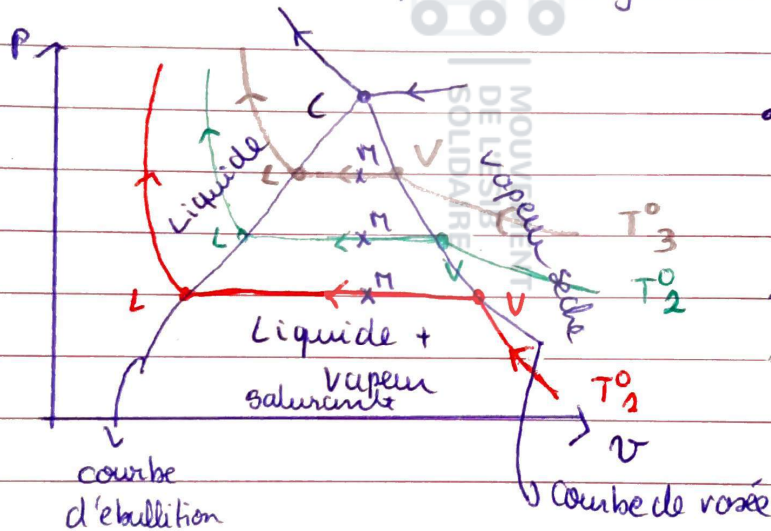 MOUVEMENT
DE L'ESIB
SOLIDAIRE
P
C
Liquide
L M V
vapeur sèche
T°3
L M V
T°2
L M V
T°1
Liquide +
vapeur
saturante
v
courbe
d'ebullition
Courbe de rosée